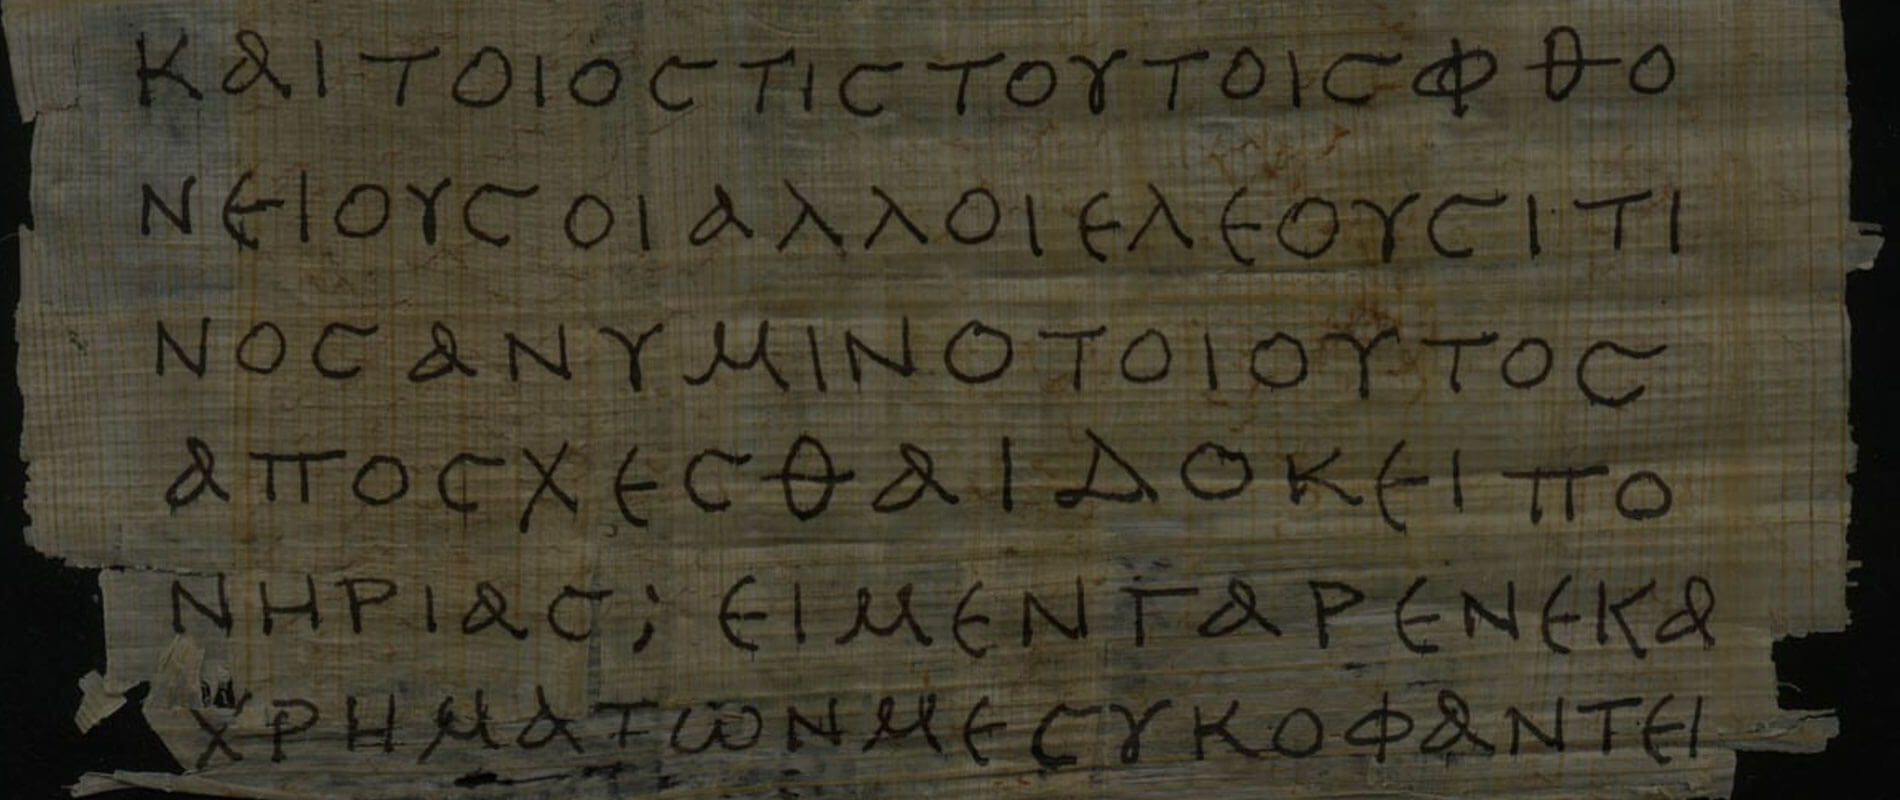 ΚΑΙΤΟΙΟϹΤΙϹΤΟΥΤΟΙϹΦΘΟ
ΝΕΙΟΥϹΟΙΑΛΛΟΙΕΛΕΟΥϹΙΤΙ
ΝΟϹΑΝΥΜΙΝΟΤΟΙΟΥΤΟϹ
ΑΠΟϹΧΕϹΘΑΙΔΟΚΕΙΠΟ
ΝΗΡΙΑϹ; ΕΙΜΕΝΓΑΡΕΝΕΚΑ
ΧΡΗΜΑΤΩΝΜΕϹΥΚΟΦΑΝΤΕΙ